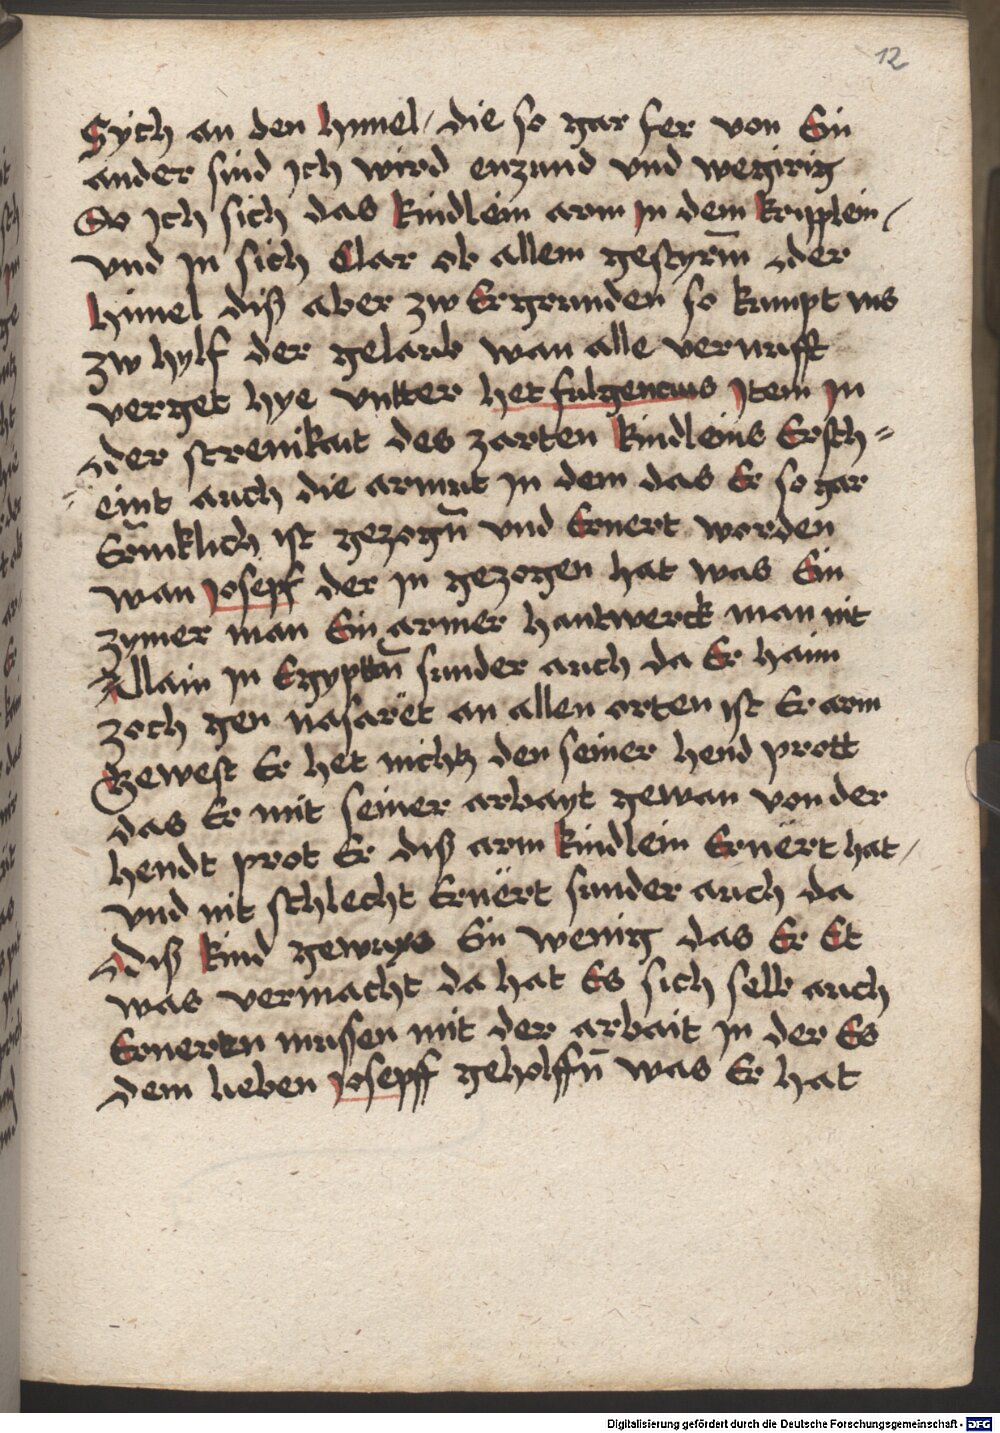 12
Sych an den himel / die so gar fer von Ein
ander sind ich wird enzund vnd wegirig
So ich sich das kindlein arm in dem kripplein /
vnd in sich Clar ob allem gestyrm̄ oder
himel diß aber zw Ergrunden so kumpt vns
zw hylf der gelaub wan alle vernufft
verget hye vntter het fulgencius Item in
der strenikait des zarten kindleins Ersch=
=eint auch die armut in dem das Er so gar
Ermklich ist gezogn̄ vnd Ernert worden
wan Josepf der in gezogen hat was Ein
zymer man Ein armer hantwerck man nit
Allain in Egyptten̄ sunder auch da Er haim
zoch gen nasarët an allen orten ist Er arm
Gewest Er het nichtz den seiner hend prott
das Er mit seiner arbayt gewan von der
hendt prot Er diß arm kindlein Ernërt hat /
vnd nit schlecht Ernërt sunder auch da
diß kind gewuxs Ein wenig das Er Et
was vermacht da hat Es sich selb auch
Ernerten mussen mit der arbait in der Es
dem lieben Josepff geholffn̄ was Er hat
Digitalisierung gefördert durch die Deutsche Forschungsgemeinschaft - DFG